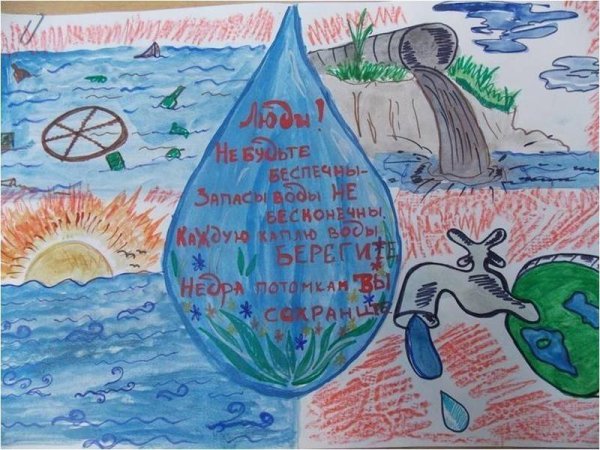 Люды!
Не будьте
беспечны-
Запасы воды не
бесконечны.
Каждую каплю воды
берегите
Недра потомкам вы
сохраните